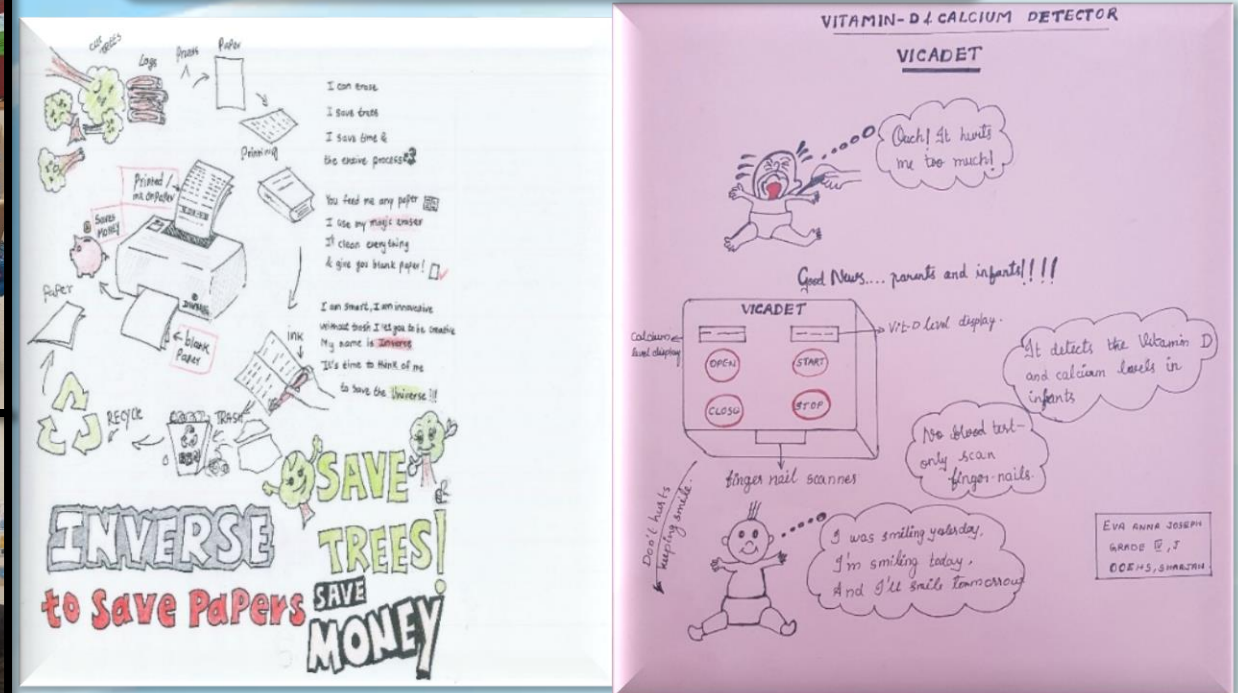 CUT TREES
Logs
Process
Paper
Printing
Printed /
ink on Paper
SAVES
MONEY
PaPer
blank
Paper
ink
RECYCLE
TRASH
I can erase
I save trees
I save time &
the entire process
You feed me any paper
I use my magic eraser
It clean everything
& give you blank paper!
I am smart, I am innovative
without trash I let you to be creative
My name is Inverse
It's time to think of me
to save the Universe!!!
SAVE
TREES!
INVERSE
to Save PaPers
SAVE
MONEY
VITAMIN-D & CALCIUM DETECTOR
VICADET
Ouch! It hurts
me too much!
Good News.... parents and infants!!!!
VICADET
calcium
level display
Vit-D level display.
OPEN
START
CLOSE
STOP
finger nail scanner
It detects the Vitamin D
and calcium levels in
infants
No blood test-
only scan
finger-nails.
Don't hurts
keeping smile.
I was smiling yesterday,
I'm smiling today,
And I'll smile tomorrow
EVA ANNA JOSEPH
GRADE IV, J
OOEHS, SHARJAH